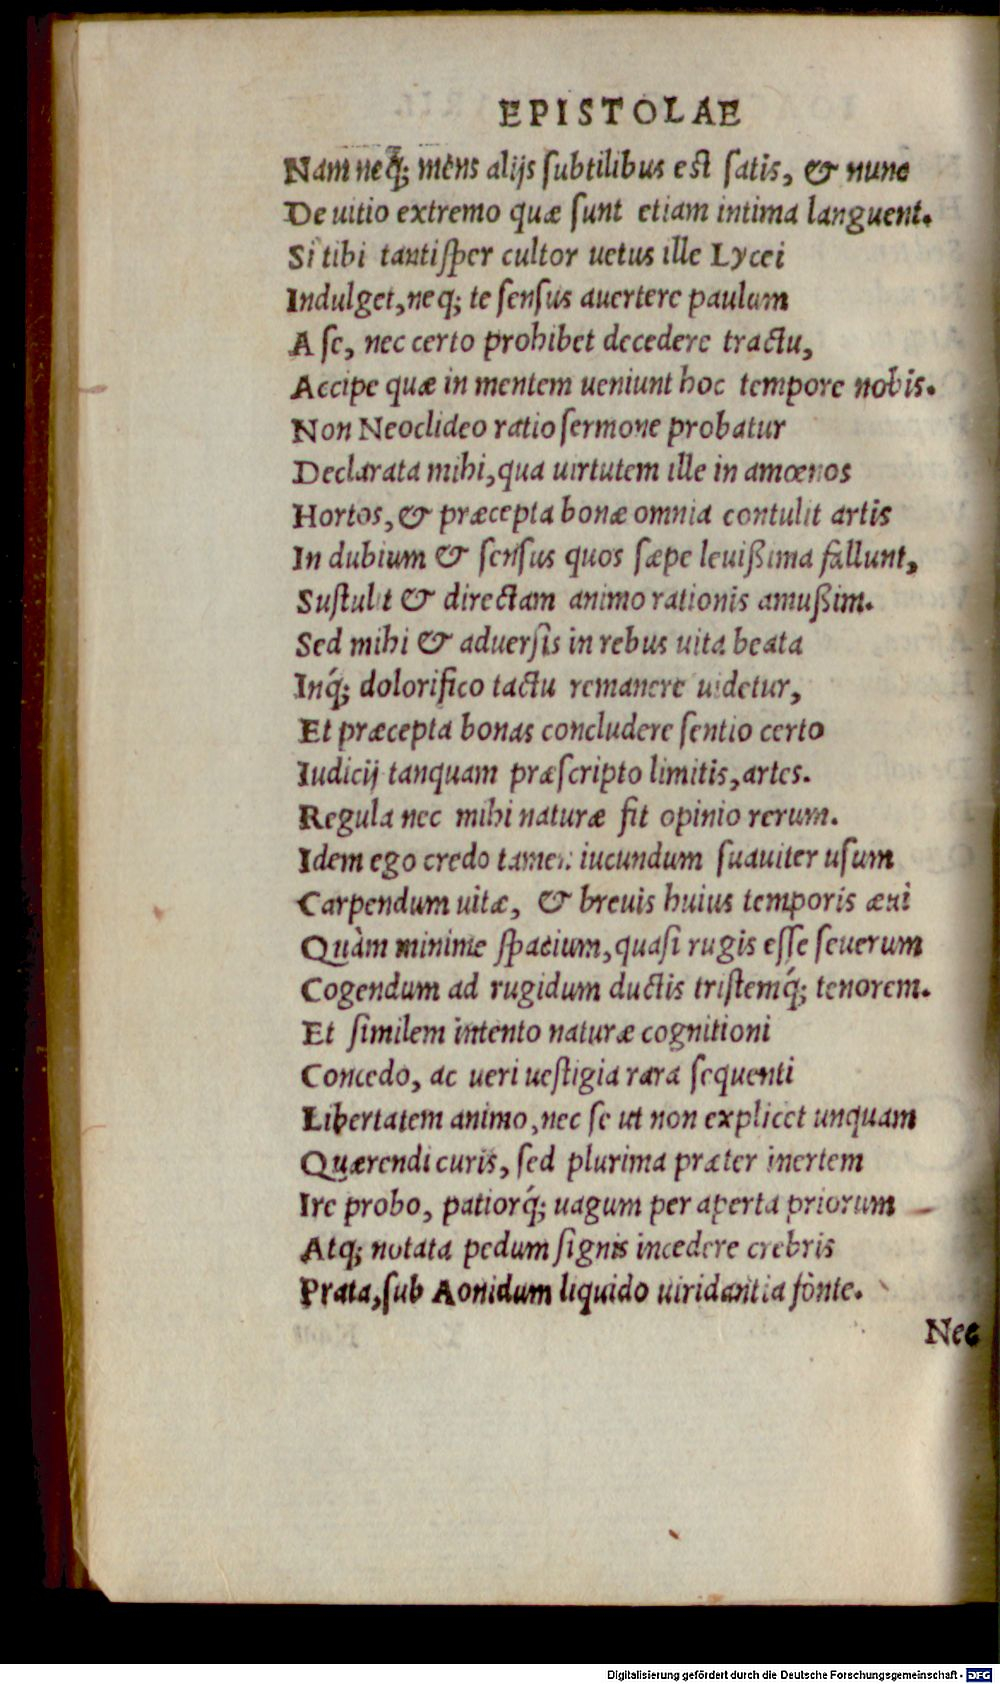 EPISTOLAE
Nam neq́; mens alijs subtilibus est satis, & nunc
De uitio extremo quæ sunt etiam intima languent.
Si tibi tantisper cultor uetus ille Lycei
Indulget, neq; te sensus auertere paulum
A se, nec certo prohibet decedere tractu,
Accipe quæ in mentem ueniunt hoc tempore nobis.
Non Neoclideo ratio sermone probatur
Declarata mihi, qua uirtutem ille in amœnos
Hortos, & præcepta bonæ omnia contulit artis
In dubium & sensus quos sæpe leuißima fallunt,
Sustulit & directam animo rationis amußim.
Sed mihi & aduersis in rebus uita beata
Inq́; dolorifico tactu remanere uidetur,
Et præcepta bonas concludere sentio certo
Iudicij tanquam præscripto limitis, artes.
Regula nec mihi naturæ fit opinio rerum.
Idem ego credo tamen iucundum suauiter usum
Carpendum uitæ, & breuis huius temporis æui
Quàm minime spacium, quasi rugis esse seuerum
Cogendum ad rugidum ductis tristemq́; tenorem.
Et similem intento naturæ cognitioni
Concedo, ac ueri uestigia rara sequenti
Libertatem animo, nec se ut non explicet unquam
Quærendi curis, sed plurima præter inertem
Ire probo, patiorq́; uagum per aperta priorum
Atq; notata pedum signis incedere crebris
Prata, sub Aonidum liquido uiridantia fonte.
Nec
Digitalisierung gefördert durch die Deutsche Forschungsgemeinschaft - DFG